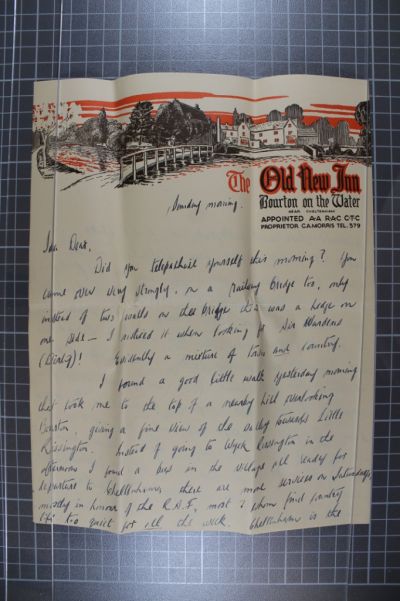 The Old New Inn
Bourton on the Water
NEAR CHELTENHAM
APPOINTED A·A R·A·C C·T·C
PROPRIETOR C.A.MORRIS TEL. 379
Sunday morning.
Dear,
Did you telepathise yourself this morning? You
came over very strongly, on a railway bridge too, only
instead of two walls on the bridge there was a hedge on
one side — I noticed it when looking for Air Wardens
! Evidently a mixture of town and country.
I found a good little walk yesterday morning
that took me to the top of a nearby hill overlooking
Bourton, giving a fine view of the valley towards Little
Rissington. Instead of going to Wyck Rissington in the
afternoon I found a bus in the village all ready for
departure to Cheltenham, there are more services on Saturdays,
mostly in honour of the R.A.F, most of whom find country
life too quiet for all the week. Cheltenham is the